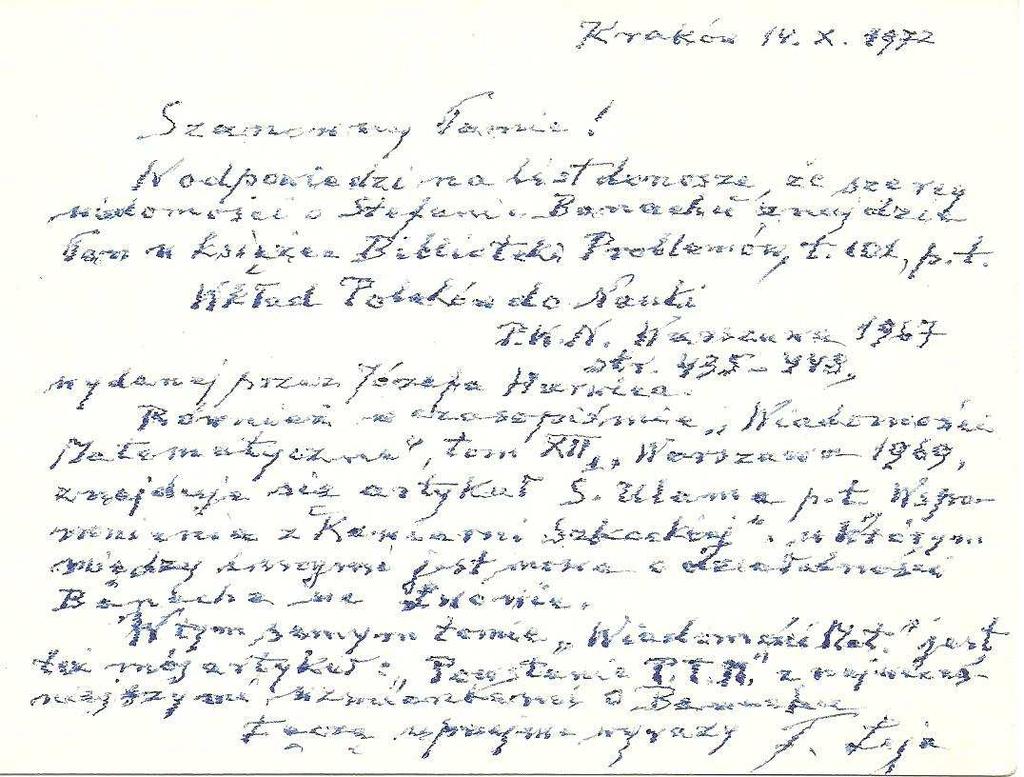 Kraków 14. X. 1972
Szanowny Panie!
W odpowiedzi na list donoszę, że szereg
wiadomości o Stefanie Banachu znajdzie
Pan w książce Biblioteki Problemów, t. 101, p.t.
Wkład Polaków do Nauki
P.W.N. Warszawa 1967
str. 435-443,
wydanej przez Józefa Hurwica.
Również w czasopiśmie „Wiadomości
Matematyczne", tom XII, Warszawa 1969,
znajduje się artykuł S. Ulama p.t. Wspo-
mnienia z Kawiarni Szkockiej", w którym
między innymi jest mowa o działalności
Banacha we Lwowie.
W tym samym tomie „Wiadomości Mat." jest
też mój artykuł: „Powstanie P.T.M." z
o Banachu
Łączę uprzejme wyrazy F. Leja